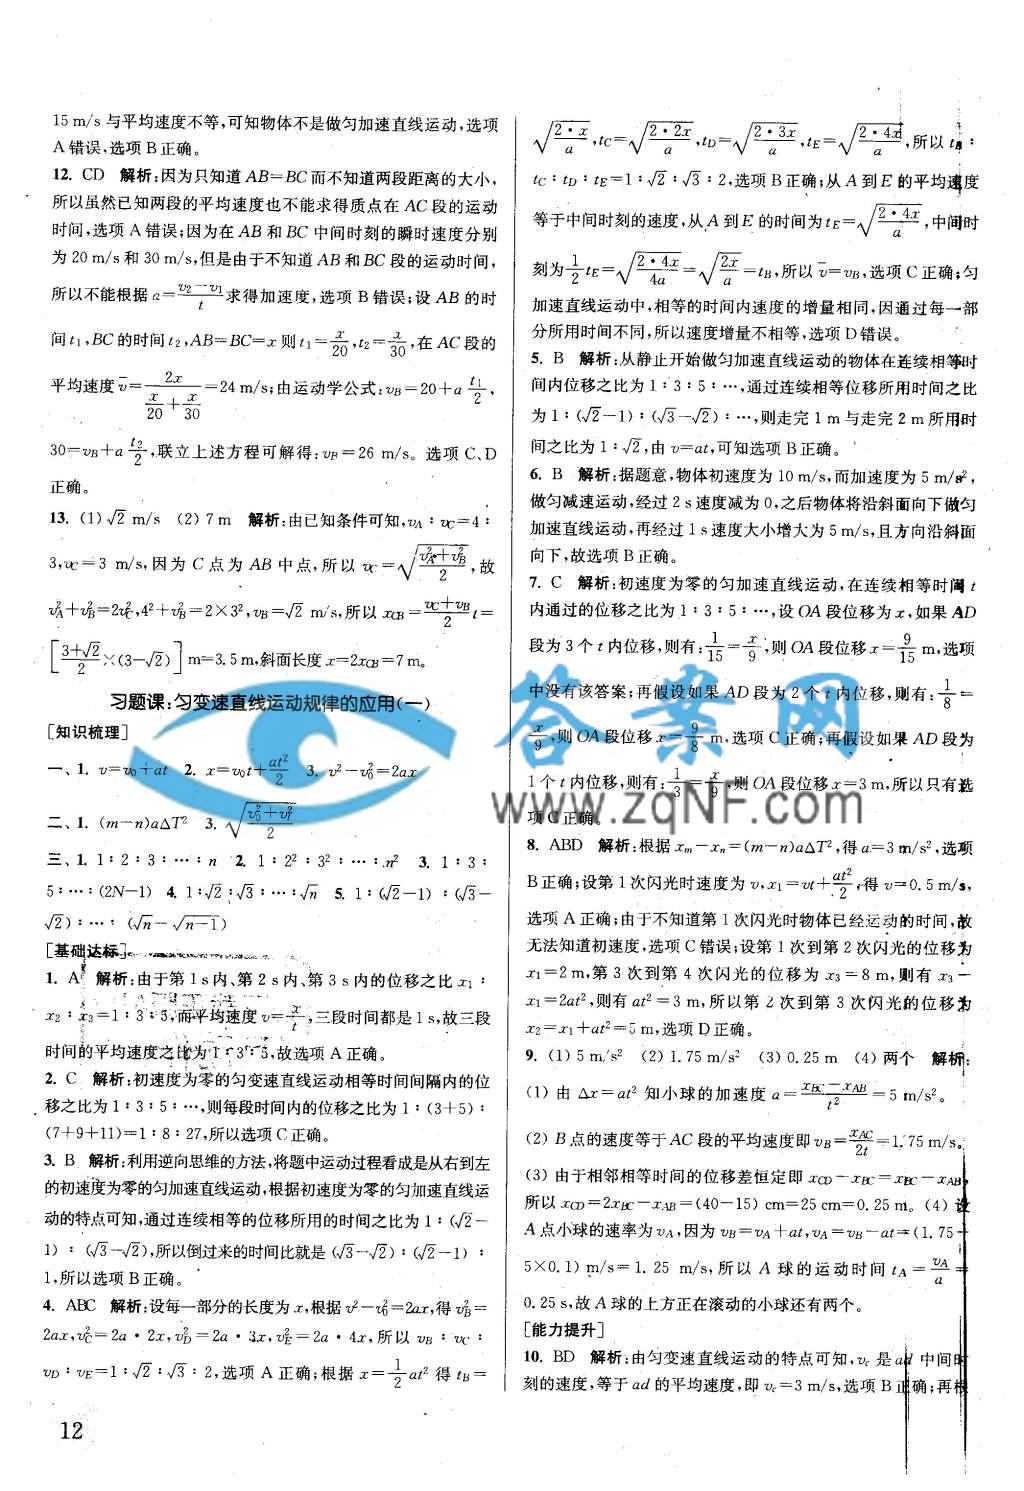 15 m/s 与平均速度不等,可知物体不是做匀加速直线运动,选项
A错误,选项B正确。
12. CD 解析:因为只知道AB=BC而不知道两段距离的大小,
所以虽然已知两段的平均速度也不能求得质点在AC段的运动
时间,选项A错误;因为在AB和BC中间时刻的瞬时速度分别
为20 m/s和30 m/s,但是由于不知道AB和BC段的运动时间,
所以不能根据 a=(v₂-v₁)/t 求得加速度,选项B错误;设AB的时
间t₁,BC的时间t₂,AB=BC=x 则t₁=x/20,t₂=x/30,在AC段的
平均速度v̄=2x/(x/20+x/30)=24 m/s;由运动学公式:v_B=20+a t₁/2,
30=v_B+a t₂/2,联立上述方程可解得:v_B=26 m/s。选项C、D
正确。
13. (1) √2 m/s (2) 7 m 解析:由已知条件可知,v_A∶v_C=4∶
3,v_C=3 m/s,因为C点为AB中点,所以 v_C=√((v_A²+v_B²)/2),故
v_A²+v_B²=2v_C²,4²+v_B²=2×3²,v_B=√2 m/s,所以 x_CB=(v_C+v_B)/2 t=
[(3+√2)/2×(3-√2)] m=3.5 m,斜面长度 x=2x_CB=7 m。
习题课:匀变速直线运动规律的应用(一)
[知识梳理]
一、1. v=v₀+at 2. x=v₀t+at²/2 3. v²-v₀²=2ax
二、1. (m-n)aΔT² 3. √((v₀²+v_t²)/2)
三、1. 1∶2∶3∶…∶n 2. 1∶2²∶3²∶…∶n² 3. 1∶3∶
5∶…∶(2N-1) 4. 1∶√2∶√3∶…∶√n 5. 1∶(√2-1)∶(√3-
√2)∶…∶(√n-√(n-1))
[基础达标]
1. A 解析:由于第1 s内、第2 s内、第3 s内的位移之比 x₁∶
x₂∶x₃=1∶3∶5,而平均速度 v=x/t,三段时间都是1 s,故三段
时间的平均速度之比为1∶3∶5,故选项A正确。
2. C 解析:初速度为零的匀变速直线运动相等时间间隔内的位
移之比为1∶3∶5∶…,则每段时间内的位移之比为1∶(3+5)∶
(7+9+11)=1∶8∶27,所以选项C正确。
3. B 解析:利用逆向思维的方法,将题中运动过程看成是从右到左
的初速度为零的匀加速直线运动,根据初速度为零的匀加速直线运
动的特点可知,通过连续相等的位移所用的时间之比为1∶(√2-
1)∶(√3-√2),所以倒过来的时间比就是(√3-√2)∶(√2-1)∶
1,所以选项B正确。
4. ABC 解析:设每一部分的长度为x,根据v²-v₀²=2ax,得v_B²=
2ax,v_C²=2a·2x,v_D²=2a·3x,v_E²=2a·4x,所以 v_B∶v_C∶
v_D∶v_E=1∶√2∶√3∶2,选项A正确;根据 x=1/2 at² 得 t_B=
12
√(2·x/a),t_C=√(2·2x/a),t_D=√(2·3x/a),t_E=√(2·4x/a),所以 t_B∶
t_C∶t_D∶t_E=1∶√2∶√3∶2,选项B正确;从A到E的平均速度
等于中间时刻的速度,从A到E的时间为t_E=√(2·4x/a),中间时
刻为1/2 t_E=√(2·4x/4a)=√(2x/a)=t_B,所以v̄=v_B,选项C正确;匀
加速直线运动中,相等的时间内速度的增量相同,因通过每一部
分所用时间不同,所以速度增量不相等,选项D错误。
5. B 解析:从静止开始做匀加速直线运动的物体在连续相等时
间内位移之比为1∶3∶5∶…,通过连续相等位移所用时间之比
为1∶(√2-1)∶(√3-√2)∶…,则走完1 m与走完2 m所用时
间之比为1∶√2,由v=at,可知选项B正确。
6. B 解析:据题意,物体初速度为10 m/s,而加速度为5 m/s²,
做匀减速运动,经过2 s速度减为0,之后物体将沿斜面向下做匀
加速直线运动,再经过1 s速度大小增大为5 m/s,且方向沿斜面
向下,故选项B正确。
7. C 解析:初速度为零的匀加速直线运动,在连续相等时间 t
内通过的位移之比为1∶3∶5∶…,设OA段位移为x,如果AD
段为3个t内位移,则有:1/15=x/9,则OA段位移x=9/15 m,选项
中没有该答案;再假设如果AD段为2个t内位移,则有:1/8=
x/9,则OA段位移x=9/8 m,选项C正确;再假设如果AD段为
1个t内位移,则有:1/3=x/9,则OA段位移x=3 m,所以只有选
项C正确。
8. ABD 解析:根据x_m-x_n=(m-n)aΔT²,得a=3 m/s²,选项
B正确;设第1次闪光时速度为v,x₁=vt+at²/2,得v=0.5 m/s,
选项A正确;由于不知道第1次闪光时物体已经运动的时间,故
无法知道初速度,选项C错误;设第1次到第2次闪光的位移为
x₁=2 m,第3次到第4次闪光的位移为x₃=8 m,则有x₃-
x₁=2at²,则有at²=3 m,所以第2次到第3次闪光的位移为
x₂=x₁+at²=5 m,选项D正确。
9. (1) 5 m/s² (2) 1.75 m/s² (3) 0.25 m (4) 两个 解析:
(1) 由 Δx=at² 知小球的加速度 a=(x_BC-x_AB)/t²=5 m/s²。
(2) B点的速度等于AC段的平均速度即v_B=x_AC/2t=1.75 m/s。
(3) 由于相邻相等时间的位移差恒定即x_CD-x_BC=x_BC-x_AB,
所以x_CD=2x_BC-x_AB=(40-15) cm=25 cm=0.25 m。(4) 设
A点小球的速率为v_A,因为v_B=v_A+at,v_A=v_B-at=(1.75-
5×0.1) m/s=1.25 m/s,所以A球的运动时间t_A=v_A/a=
0.25 s,故A球的上方正在滚动的小球还有两个。
[能力提升]
10. BD 解析:由匀变速直线运动的特点可知,v_c是ad中间时
刻的速度,等于ad的平均速度,即v_c=3 m/s,选项B正确;再根
答案网
www.zqNF.com